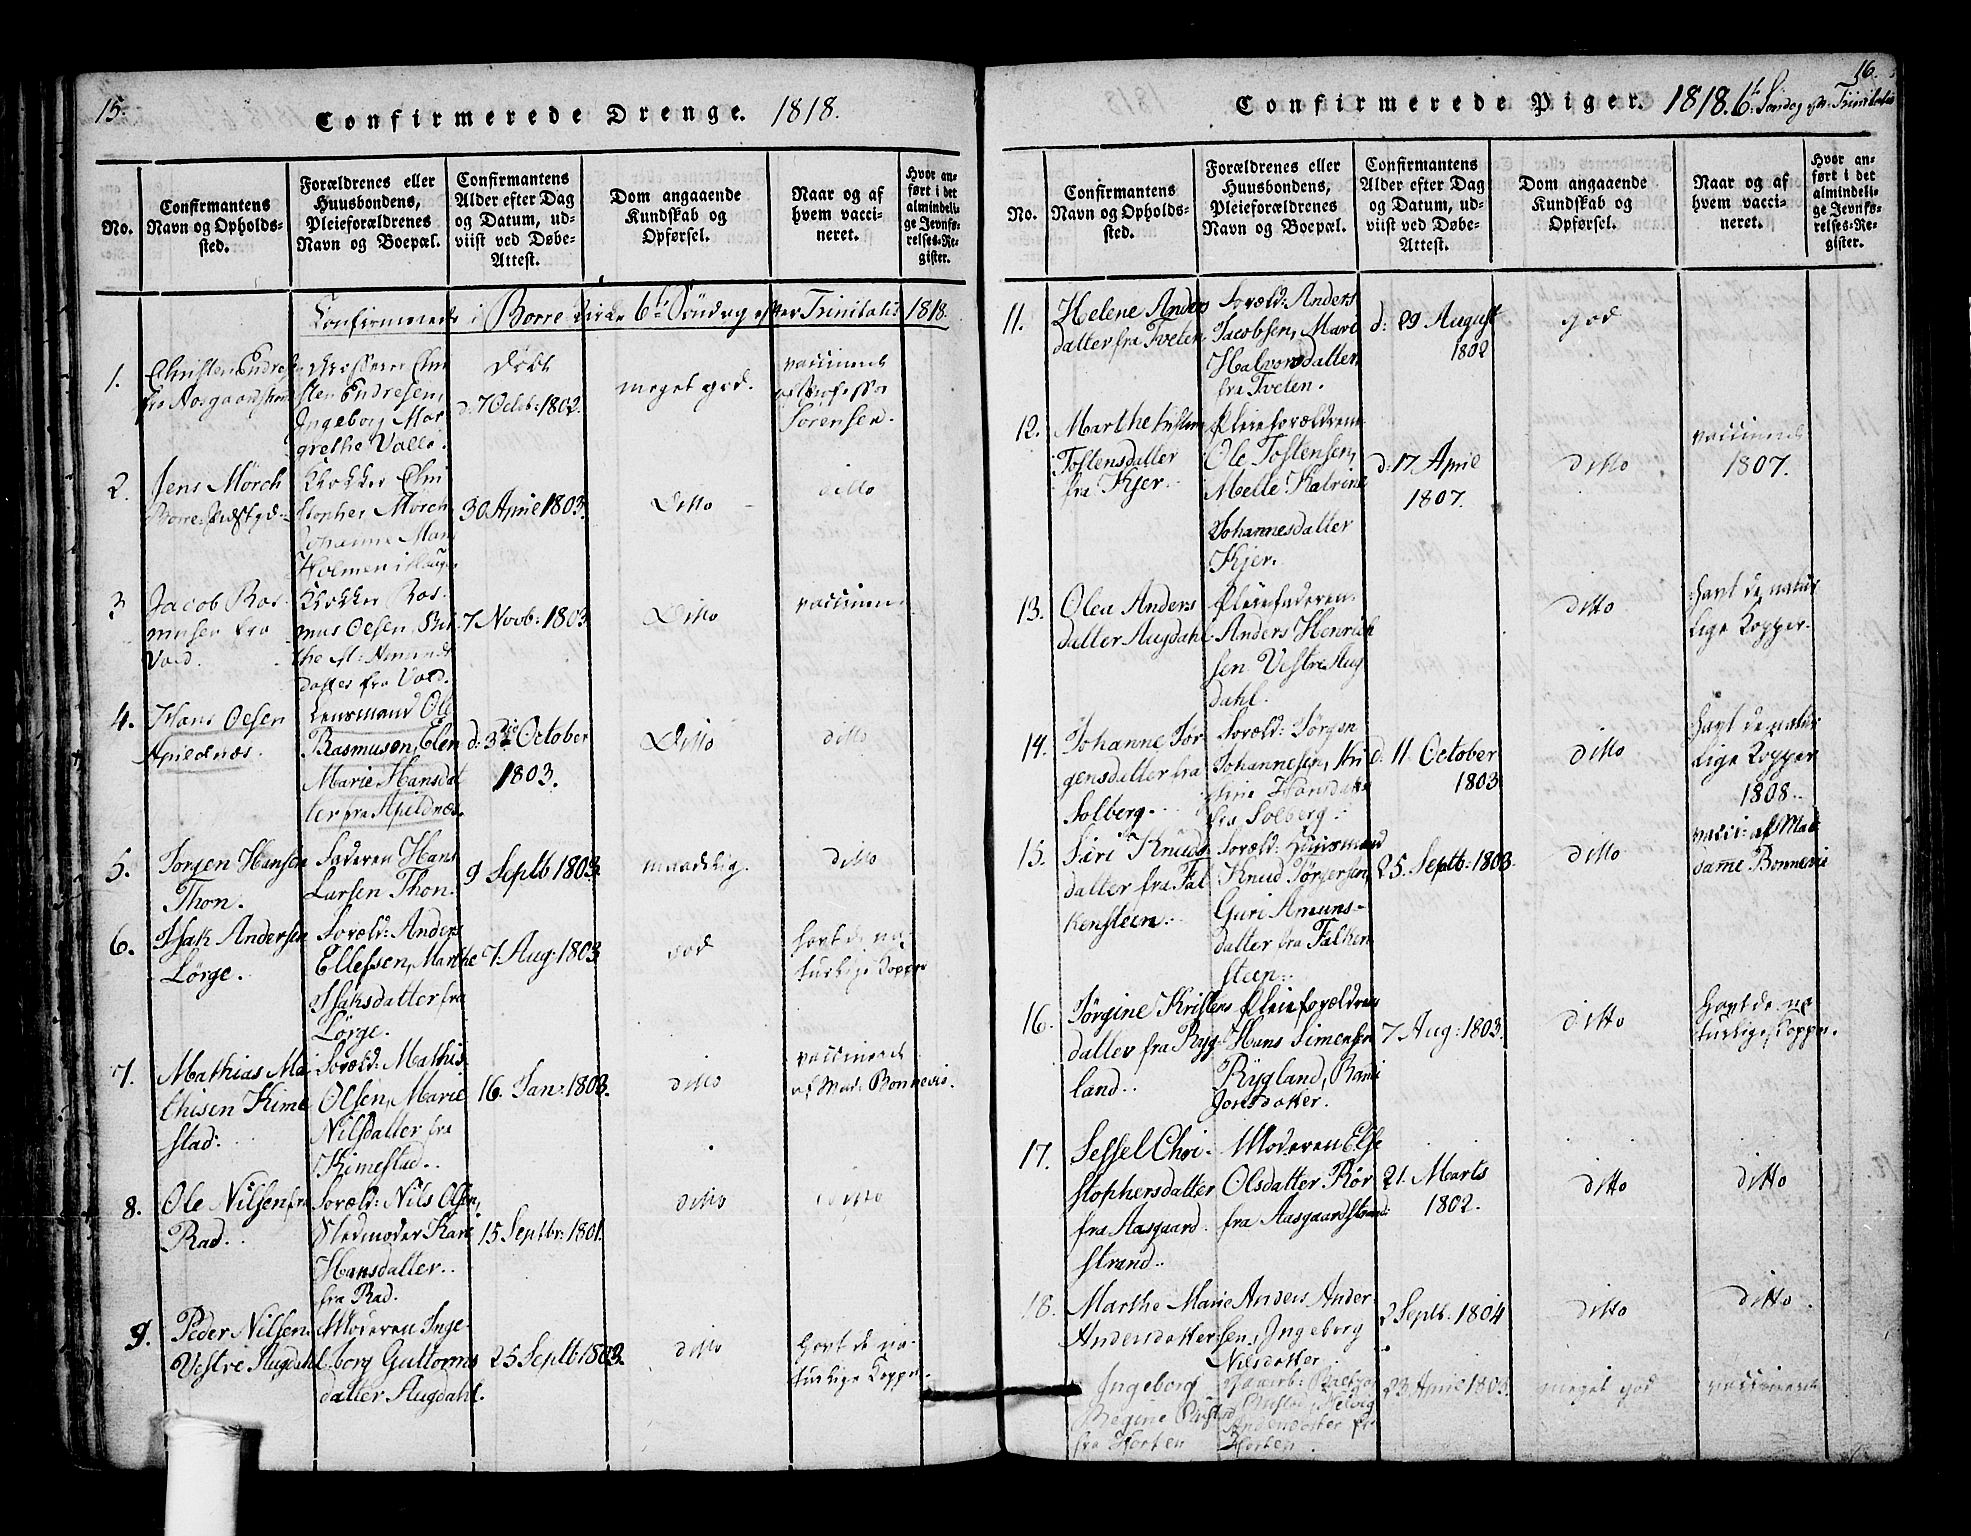 15.
Confirmerede Drenge. 1818.
No.
Confirmantens
Navn og Opholds-
sted.
Forældrenes eller
Huusbondens,
Pleieforældrenes
Navn og Boepæl.
Confirmantens
Alder efter Dag
og Datum, ud-
viist ved Døbe-
Attest.
Dom angaaende
Kundskab og
Opførsel.
Naar og af
hvem vacci-
neret.
Hvor an-
ført i det
almindeli-
ge Jevnfø-
relses-Re-
gister.
Confirmerede i Borre Kirke 6te Söndag efter Trinitatis 1818.
1.
Christen Endresen
fra Aasgaardstrand
sten Endresen,
Ingeborg Mar
grethe Valle.
döbt
d: 7 Octb: 1802.
meget god.
vaccineret
af Professor
Sörensen.
2.
Jens Mörch
Borre Præstgd:
Klokker Chri
stopher Mörch
Johanne Mar
Holmen i Houge
30 April 1803.
Ditto
ditto
3
Jacob Ras-
musen fra
Vold.
Klokker Ras-
mus Olsen, Bir
the M: Amunds
datter fra Vold.
7 Novb: 1803
Ditto
vaccineret
4.
Hans Olsen
Apildnæs.
Lensmand Ole
Rasmusen, Elen
Marie Hansdat
ter fra Apildnæs.
d: 3die October
1803.
Ditto
ditto
5.
Jorgen Hansen
Thon.
Faderen Hans
Larsen Thon.
9 Septb 1803.
maadelig.
ditto
6.
Isak Andersen
Lörge.
Foræld: Anders
Ellefsen, Marthe
Isaksdatter fra
Lörge.
7 Aug: 1803
god
havt de na-
turlige Kopper
7.
Mathias Ma-
thisen Kime
stad:
Foræld: Mathis
Olsen, Marie
Nilsdatter fra
Kimestad.
16. Jan: 1803.
ditto
vaccineret
af Mad: Bonnevie.
8.
Ole Nilsen fra
Rad.
Foræld: Nils Olsen,
Stedmoder Kari
Hansdatter
fra Rad.
15 Septbr: 1801.
ditto
ditto
9.
Peder Nilsen
Vestre Augdahl
Moderen Inge-
borg Guttorms
datter Augdahl.
25 Septb: 1803.
ditto
havt de na-
turlige Kopper.
16.
Confirmerede Piger. 1818. 6te Söndag eft. Trinitatis
No.
Confirmantens
Navn og Opholds-
sted.
Forældrenes eller
Huusbondens,
Pleieforældrenes
Navn og Boepæl.
Confirmantens
Alder efter Dag
og Datum, ud-
viist ved Døbe-
Attest.
Dom angaaende
Kundskab og
Opførsel.
Naar og af
hvem vacci-
neret.
Hvor an-
ført i det
almindeli-
ge Jevnfø-
relses-Re-
gister.
11.
Helene Anders
datter fra Tveten
Foræld: Anders
Jacobsen, Mari
Halvorsdatter
fra Tveten.
d: 29 August
1802
god
12.
Marthe
Tostensdatter
fra Kjer.
Pleieforældrene
Ole Tostensen,
Mette Katrine
Johannesdatter
Kjer.
d: 17 April
1807.
ditto
vaccineret
1807.
13.
Olea Anders
datter Augdahl
Pleiefaderen
Anders Henrich
sen Vestre Aug
dahl.
ditto
havt de natur
lige Kopper.
14.
Johanne Jör
gensdatter fra
Solberg.
Foræld: Jörgen
Johannesen, Kri
stine Hansdatter
fra Solberg.
d: 11 October
1803
ditto
havt de natur
lige Kopper
1808.
15.
Siri Knuds
datter fra Fal
kensteen.
Foræld: Huusmand
Knud Jörgersen,
Guri Amuns-
datter fra Falken
steen.
25. Septb: 1803.
ditto
vacci: af Ma
dame Bonnevie
16.
Jörgine Kristens
datter fra Ryg-
land.
Pleieforældrene
Hans Simensen
Rygland, Rani
Jonsdatter.
7 Aug: 1803.
ditto
havt de na
turlige Kopper.
17.
Sessel Chri-
stophersdatter
fra Aasgaard
strand.
Moderen Else
Olsdatter Rör
fra Aasgaardstrand
21. Marts
1802.
ditto
ditto
18.
Marthe Marie
Andersdatter
Anders Ander-
sen, Ingeborg
Nilsdatter
2 Septb: 1804
ditto
ditto
Ingeborg
Regine
fra Horten
Andersdatter fr
Horten.
23 April 1803.
meget god
vaccineret